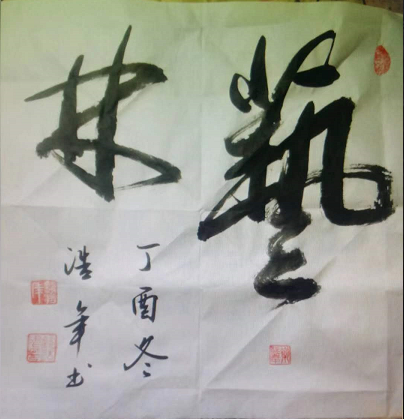 藝林
丁酉冬
浩年书